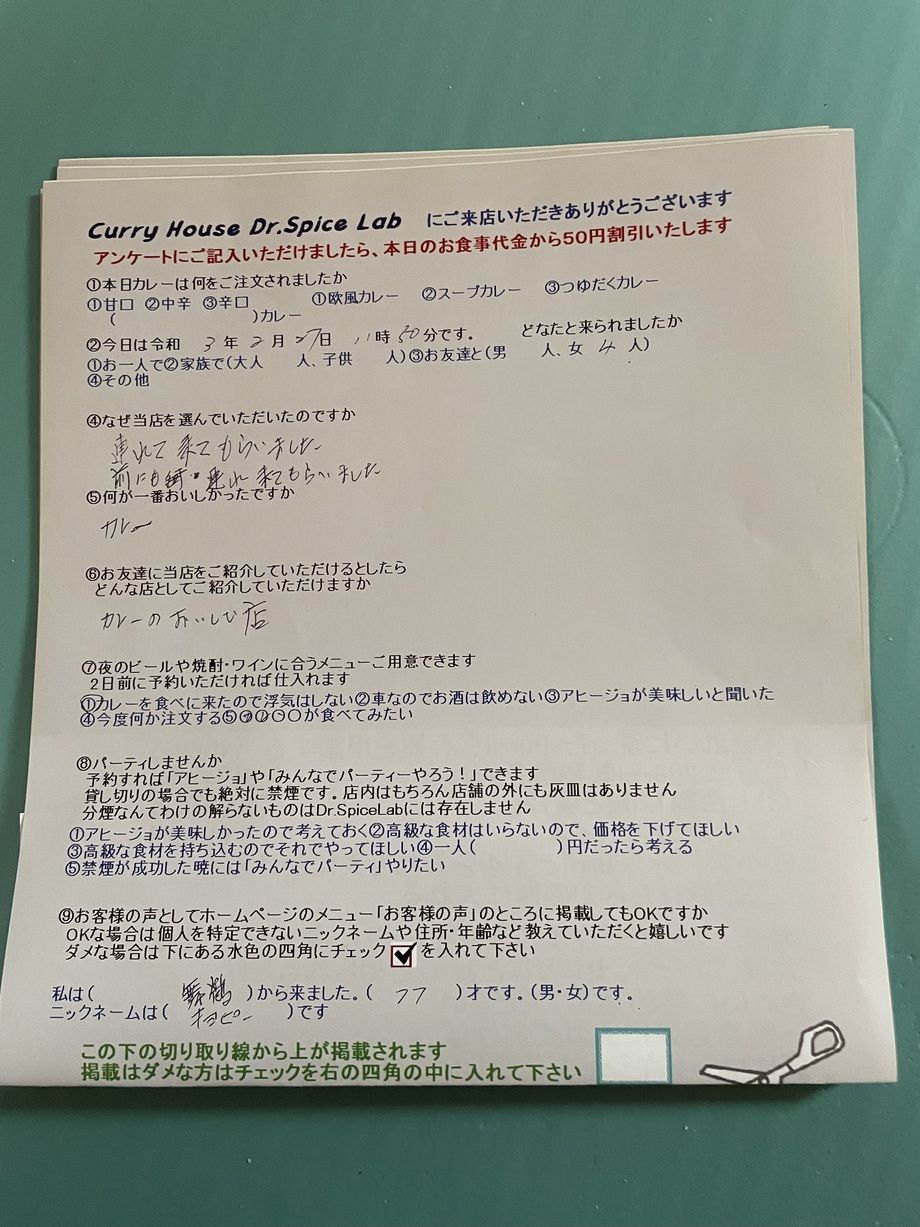 Curry House Dr.Spice Lab にご来店いただきありがとうございます
アンケートにご記入いただけましたら、本日のお食事代金から50円割引いたします
①本日カレーは何をご注文されましたか
①甘口 ②中辛 ③辛口 ①欧風カレー ②スープカレー ③つゆだくカレー
( )カレー
②今日は令和 3 年 2 月 27 日 11 時 50 分です。 どなたと来られましたか
①お一人で②家族で(大人 人、子供 人)③お友達と(男 人、女 4 人)
④その他
④なぜ当店を選んでいただいたのですか
連れて来てもらいました
前にも 連れ来てもらいました
⑤何が一番おいしかったですか
カレー
⑥お友達に当店をご紹介していただけるとしたら
どんな店としてご紹介していただけますか
カレーのおいしい店
⑦夜のビールや焼酎・ワインに合うメニューご用意できます
2日前に予約いただければ仕入れます
①カレーを食べに来たので浮気はしない②車なのでお酒は飲めない③アヒージョが美味しいと聞いた
④今度何か注文する⑤〇〇〇〇〇が食べてみたい
⑧パーティしませんか
予約すれば「アヒージョ」や「みんなでパーティーやろう!」できます
貸し切りの場合でも絶対に禁煙です。店内はもちろん店舗の外にも灰皿はありません
分煙なんてわけの解らないものはDr.SpiceLabには存在しません
①アヒージョが美味しかったので考えておく②高級な食材はいらないので、価格を下げてほしい
③高級な食材を持ち込むのでそれでやってほしい④一人( )円だったら考える
⑤禁煙が成功した暁には「みんなでパーティ」やりたい
⑨お客様の声としてホームページのメニュー「お客様の声」のところに掲載してもOKですか
OKな場合は個人を特定できないニックネームや住所・年齢など教えていただくと嬉しいです
ダメな場合は下にある水色の四角にチェック を入れて下さい
私は( 舞鶴 )から来ました。( 77 )才です。(男・女)です。
ニックネームは( )です
この下の切り取り線から上が掲載されます
掲載はダメな方はチェックを右の四角の中に入れて下さい